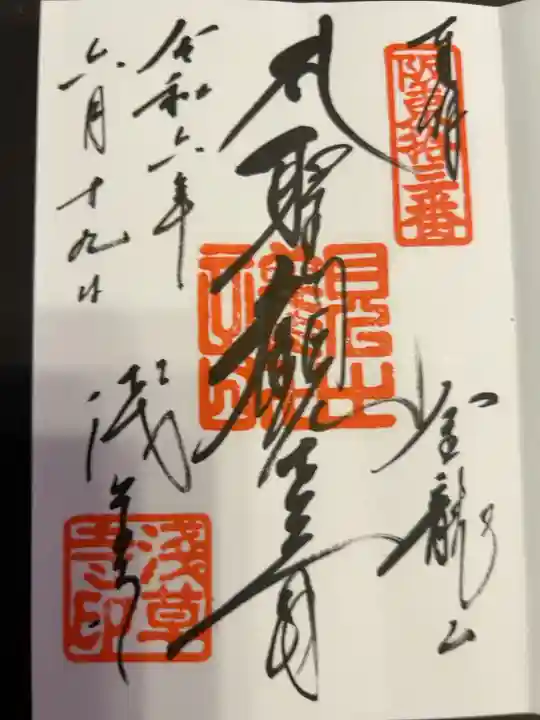 奉拝
阪東拾三番
金龍山
聖観世音
令和六年
六月十九日
浅草寺
浅草寺印